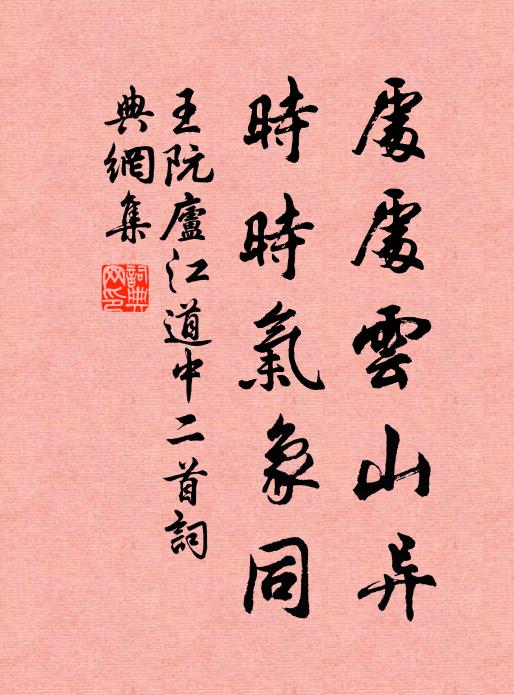 處處雲山异
時時氣象同
王阮廬江道中二首詞
典網集
詞典網印